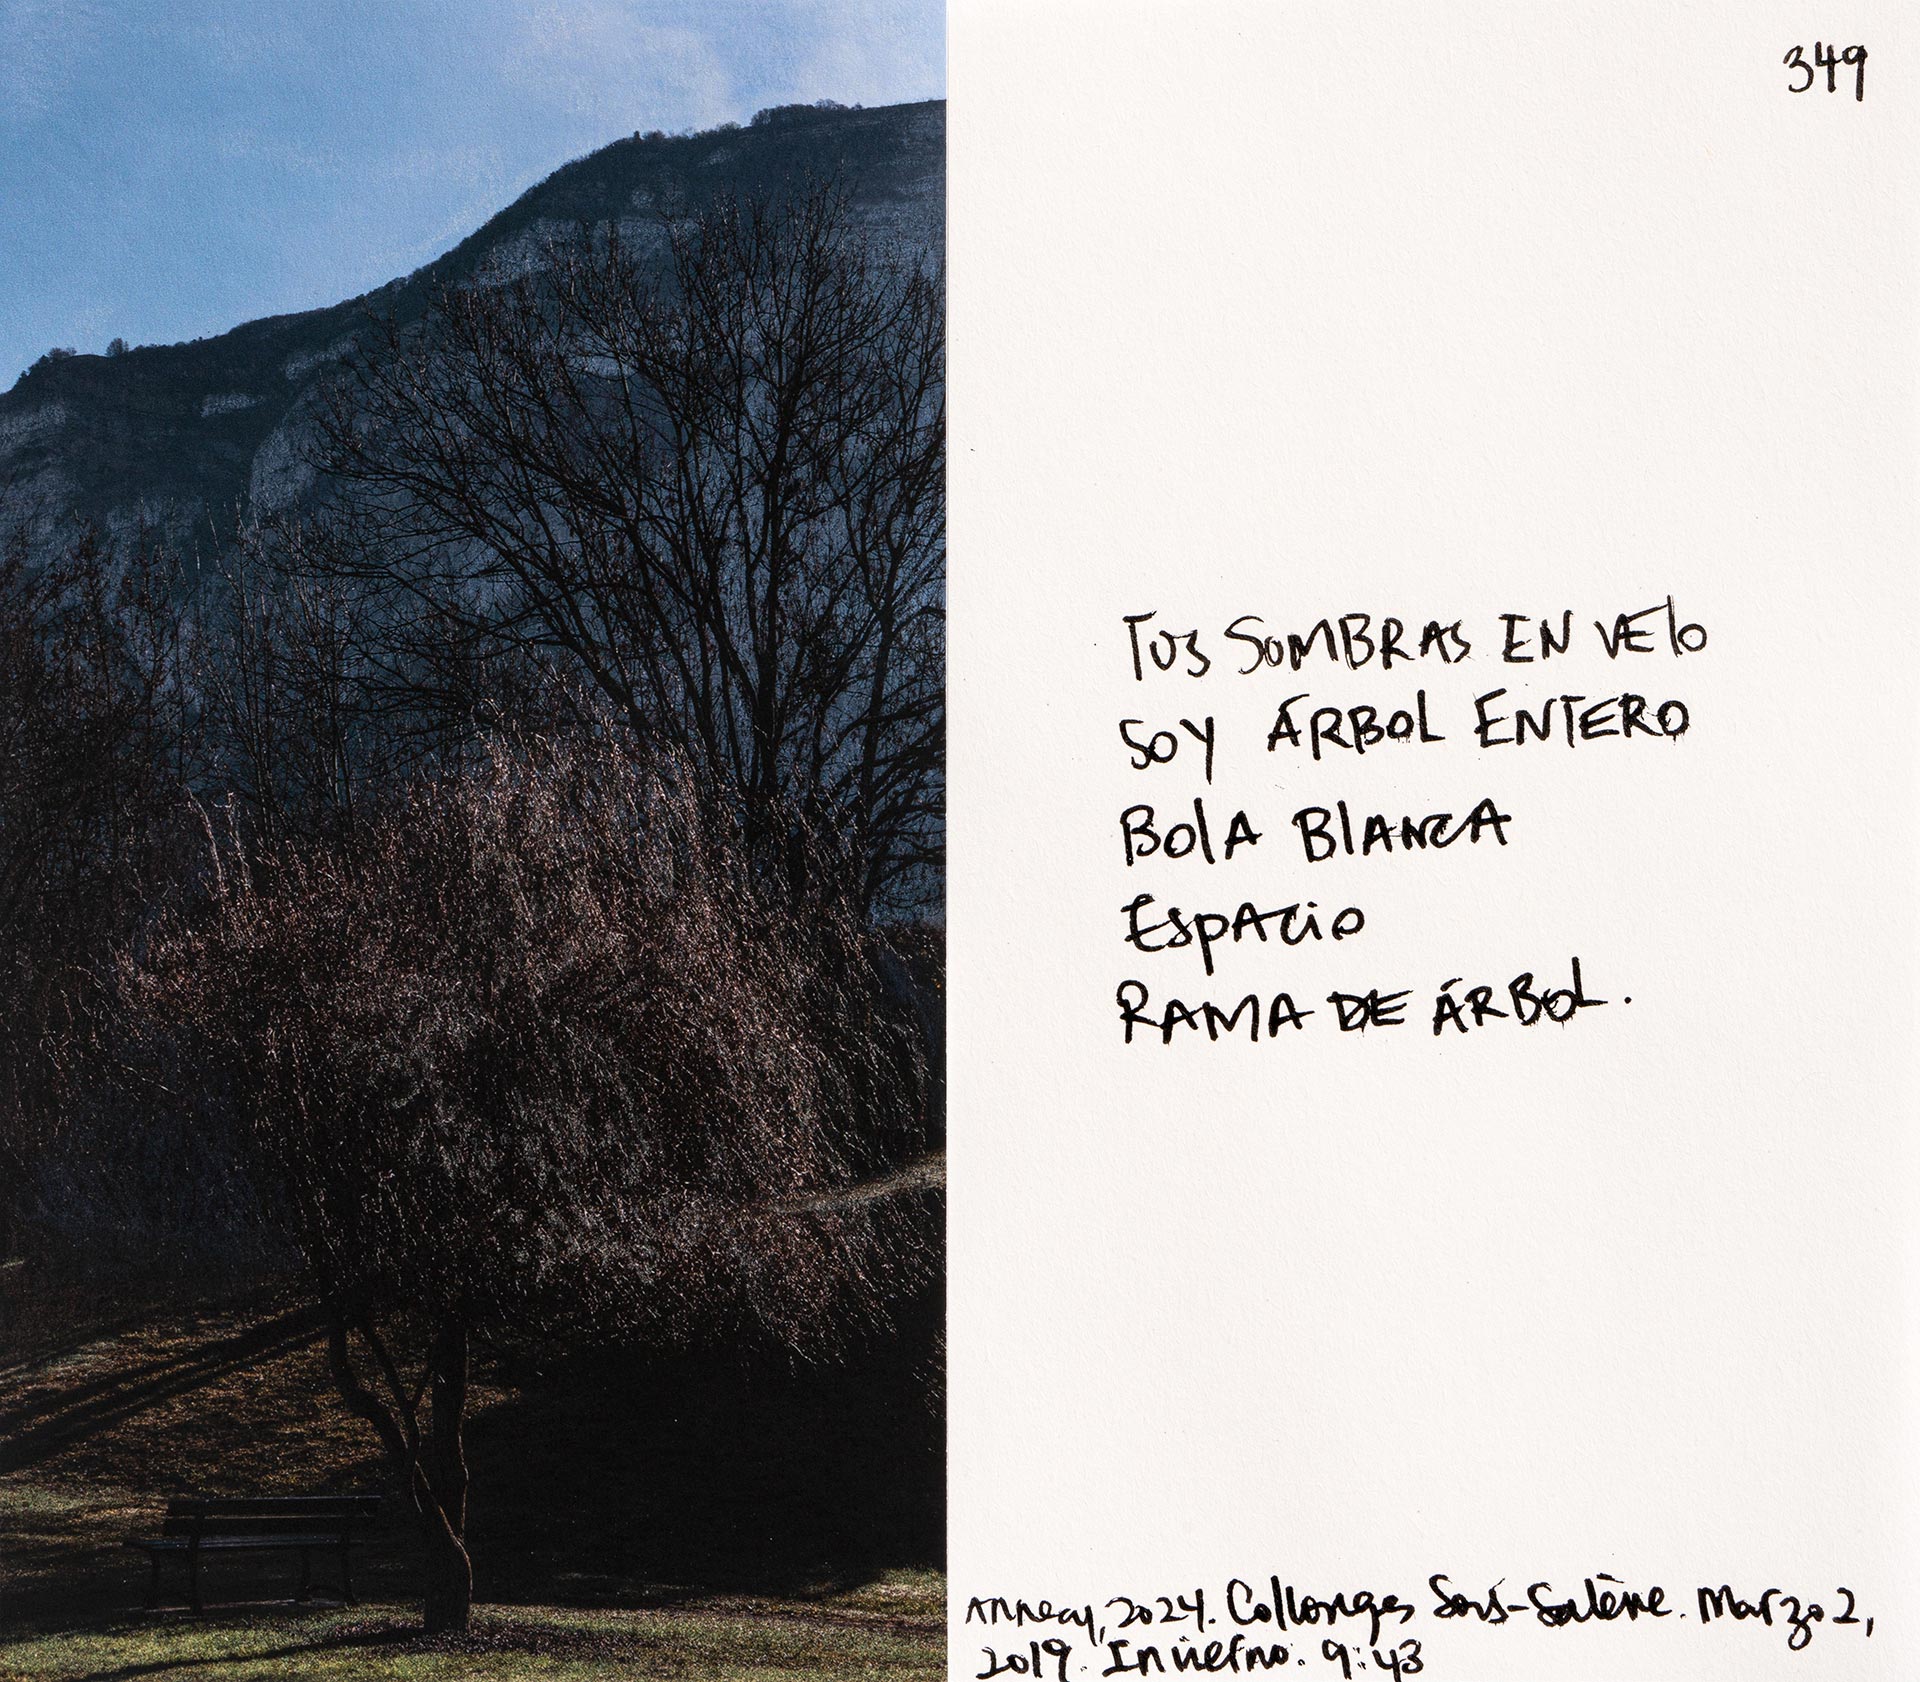 349
TUS SOMBRAS EN VElO
SOY ÁRBOL ENTERO
BolA BlANCA
EspAcio
RAMA DE ÁRBOL.
Annecy, 2024. Collonges Sous-Salève. Marzo 2,
2019. Invierno. 9:43